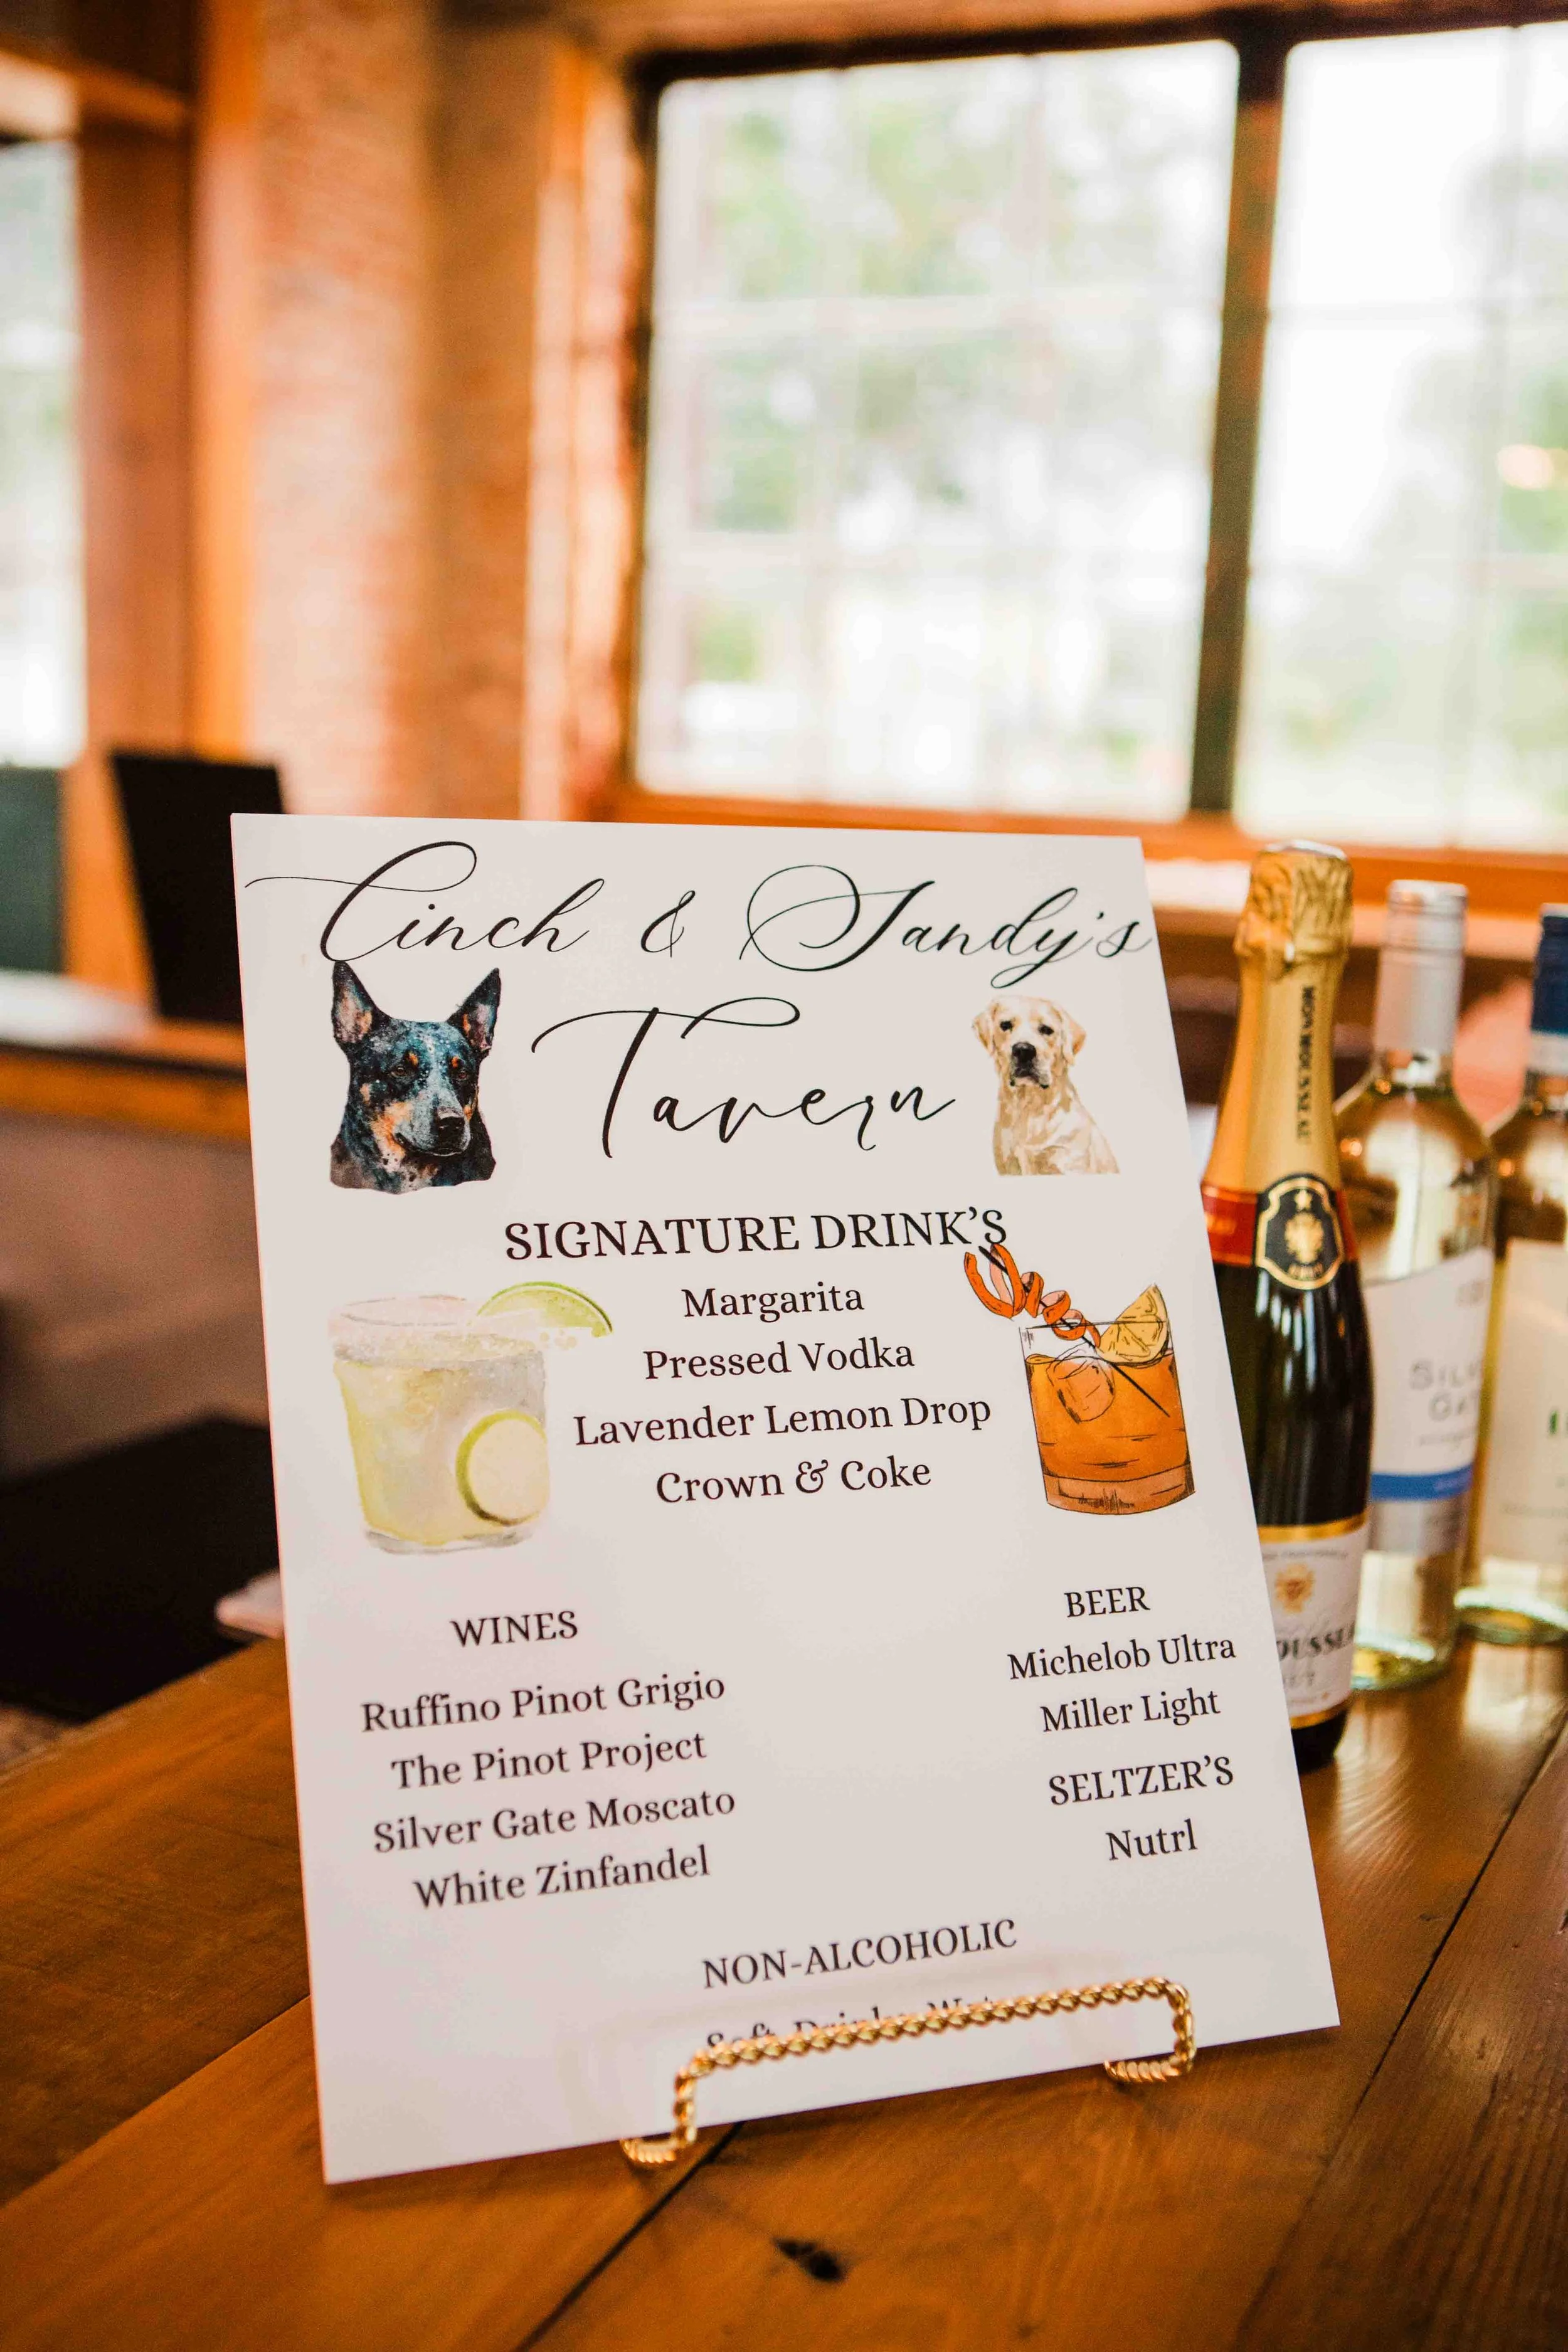 Cinch & Sandy's
Tavern
SIGNATURE DRINK'S
Margarita
Pressed Vodka
Lavender Lemon Drop
Crown & Coke
WINES
Ruffino Pinot Grigio
The Pinot Project
Silver Gate Moscato
White Zinfandel
BEER
Michelob Ultra
Miller Light
SELTZER'S
Nutrl
NON-ALCOHOLIC
Soft Drinks